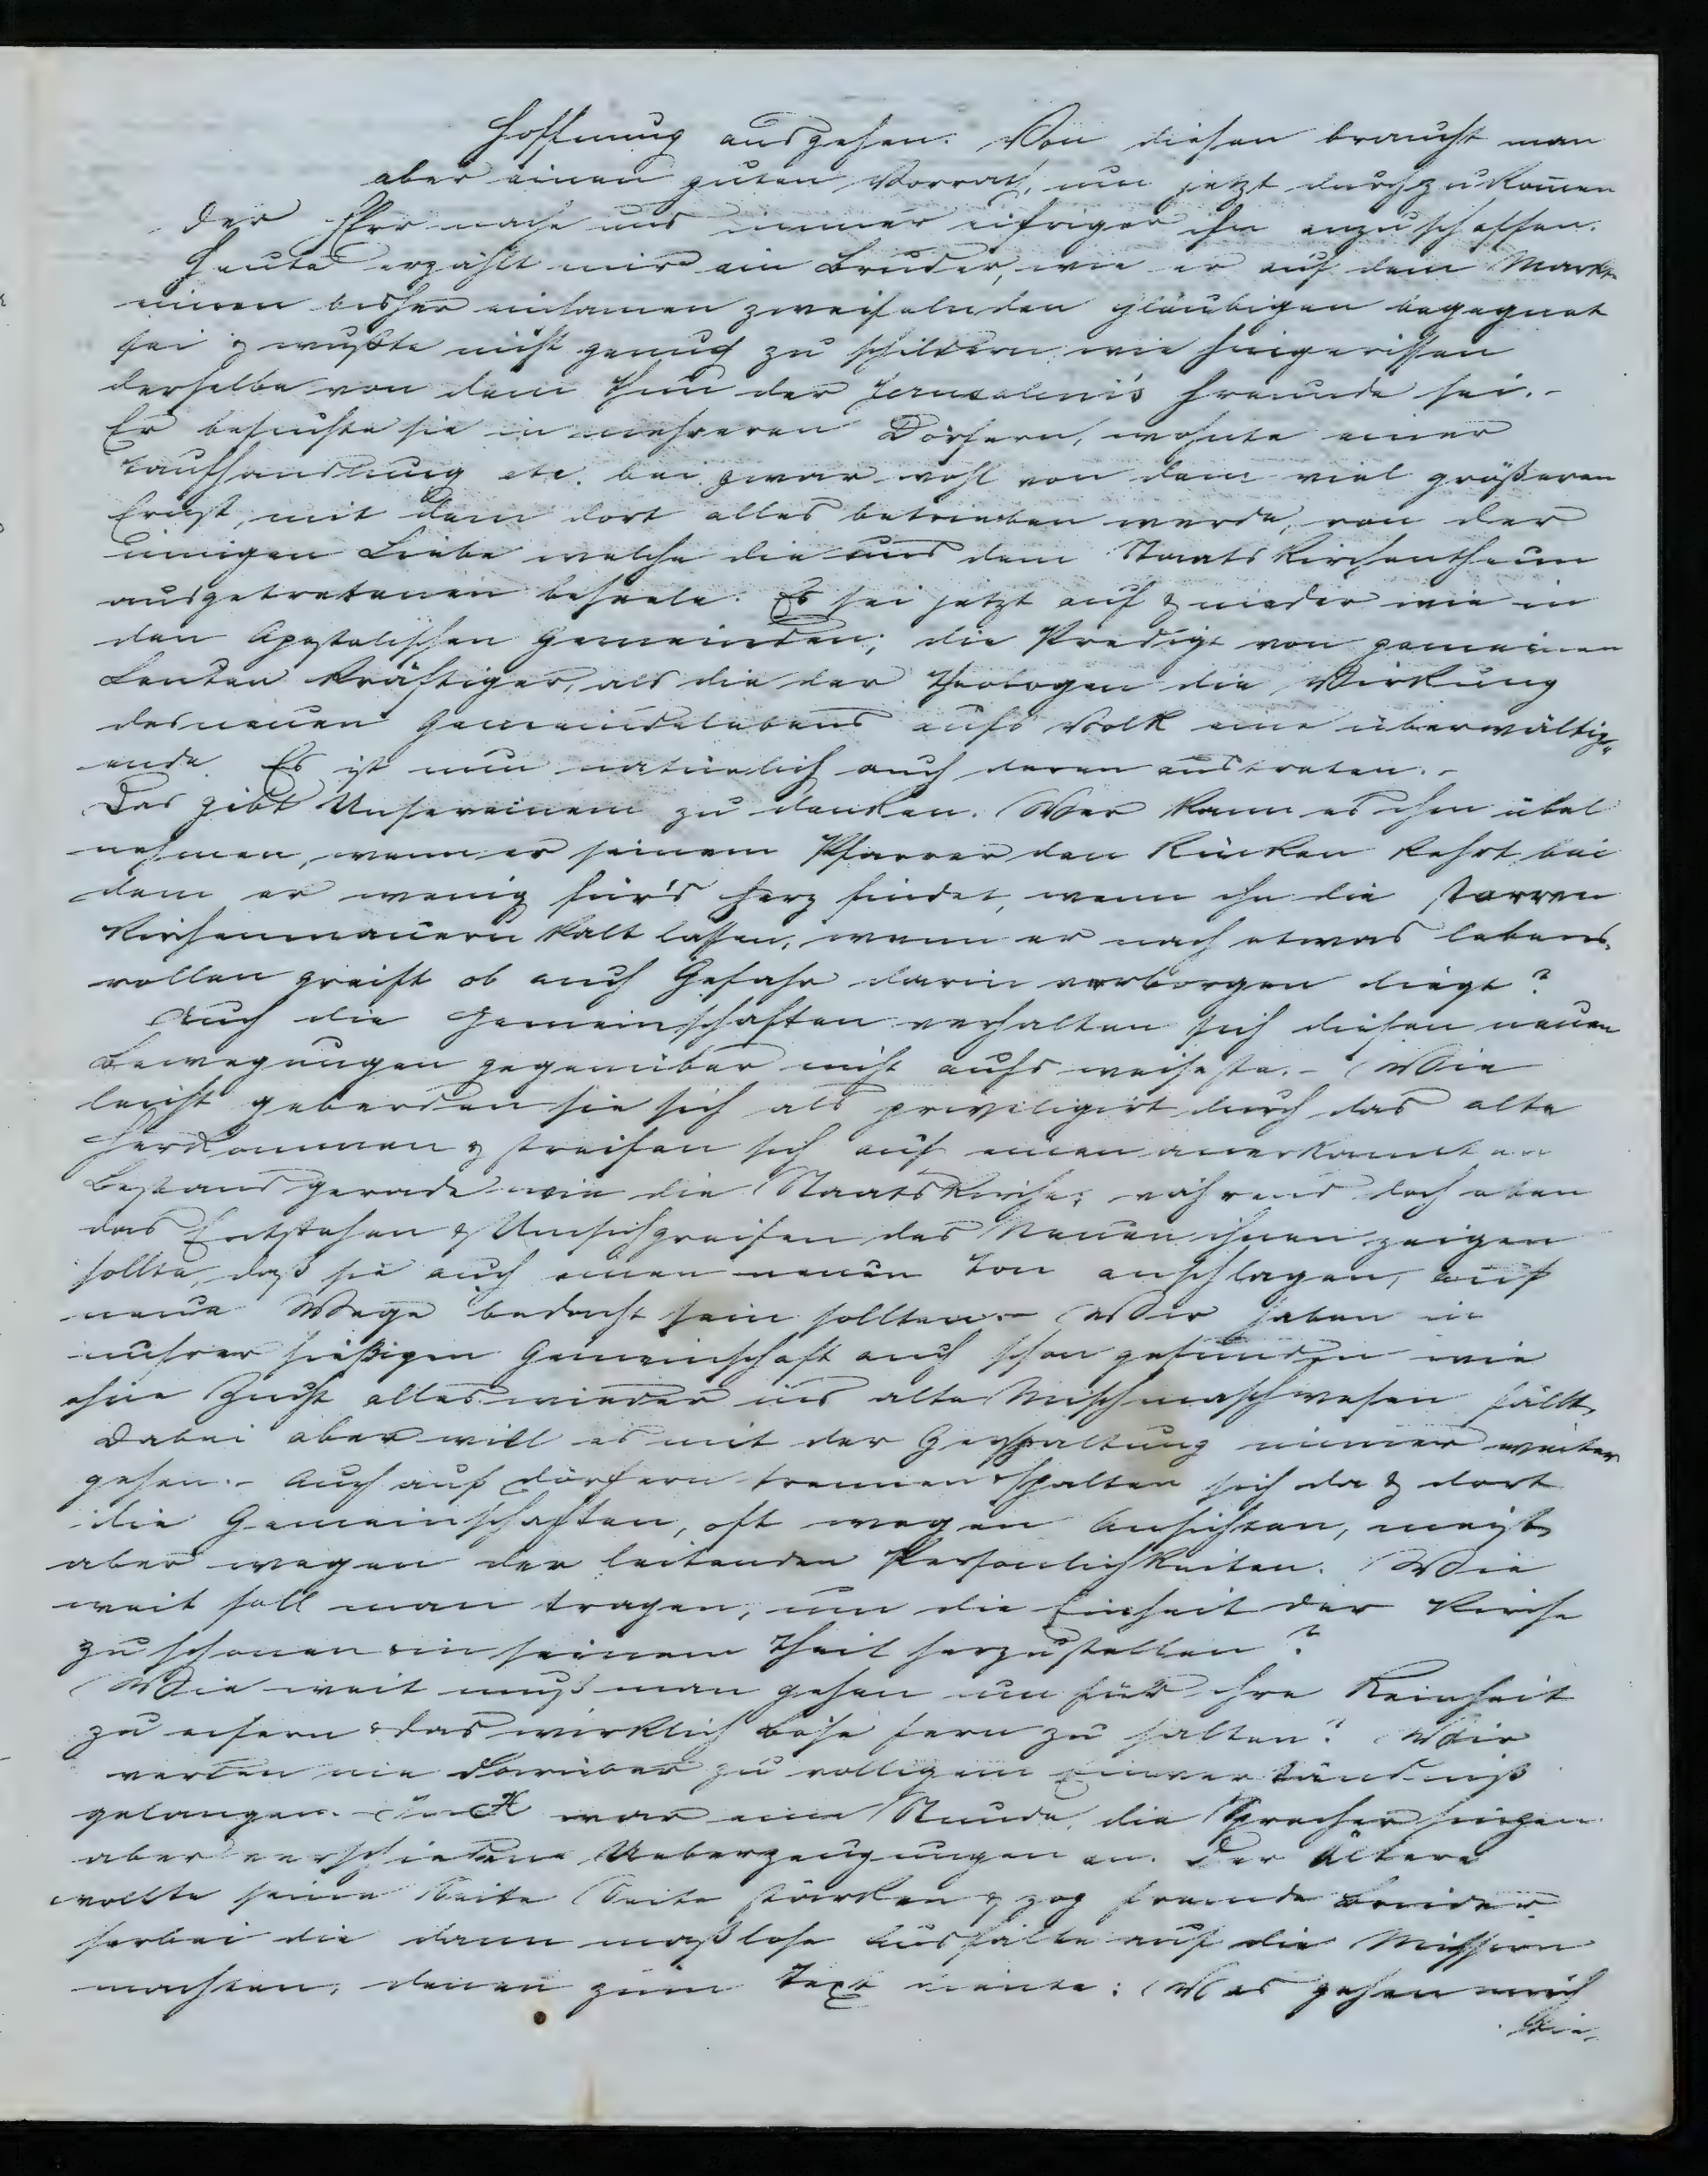 Hoffnung ausgehen. Von diesen braucht man
aber einen guten Vorrath, um jetzt durchzukom̄en
der Herr mache uns immer eifriger ihn anzuschaffen.
Heute erzählt mir ein Bruder, wie er auf dem Markt
einen bisher einsamen zweifelnden gläubigen begegnet
sei & wußte nicht genug zu schildern wie hingerissen
derselbe von dem Thun der Jerusalem's Freunde sei.-
Er besuchte sie in mehreren Dörfern, wohnte einer
Taufhandlung etc. bei zwar wohl von dem viel größeren
Ernst, mit dem dort alles betrieben werde, von der
innigen Liebe welche die aus dem Staatskirchenthum
ausgetretenen beseele. Es sei jetzt auf & nieder wie in
den Apostolischen Gemeinden; die Predigt von gemeinen
Leuten kräftiger, als die der Theologen die Wirkung
des neuen Gemeindelebens aufs Volk eine überwältig-
ende. Es ist nun natürlich auch deren austreten.-
Das gibt Unsereinem zu denken. Wer kann es ihm übel
nehmen, wenn er seinem Pfarrer den Rücken kehrt bei
dem er wenig für's Herz findet, wenn ihn die starren
Kirchenmauern kalt lassen, wenn er nach etwas lebens-
vollen greift ob auch Gefahr darin verborgen liegt?
Auch die Gemeinschaften verhalten sich diesen neuen
Bewegungen gegenüber nicht aufs weiseste.- Wie
leicht geberden sie sich als priviligirt durch das alte
Herkommen & streifen sich auf einen anerkannten
Bestand gerade wie die Staatskirche; während doch eben
das Entstehen & Umsichgreifen des Neuen ihnen zeigen
sollte, daß sie auch einen neuen Ton anschlagen, auf
neue Wege bedacht sein sollten.- Wir haben in
unsrer hießigen Gemeinschaft auch schon gefunden wie
ohne Zucht alles wieder ins alte Mischmaschwesen fällt,
Dabei aber will es mit der Zerspaltung immer weiter
gehen.- Auch auf Dörfern trennen & spalten sich da & dort
die Gemeinschaften, oft wegen Ansichten, meist
aber wegen der leitenden Persönlichkeiten. Wie
weit soll man tragen, um die Einheit der Kirche
zu schonen & in seinem Theil herzustellen?
Wie weit muß man gehen um für ihre Reinheit
zu eifern & das wirklich böse fern zu halten? Wir
werden nie darüber zu völligem Einverständniß
gelangen. In H war eine Stunde, die Sprecher hingen
aber verschiedene Ueberzeugungen an. Der Ältere
wollte seine Seite Seite stärken & zog fremde Brüder
herbei die dann maßlose Ausfälle auf die Mission
machten, denen zum Text diente: Was gehen mich
die